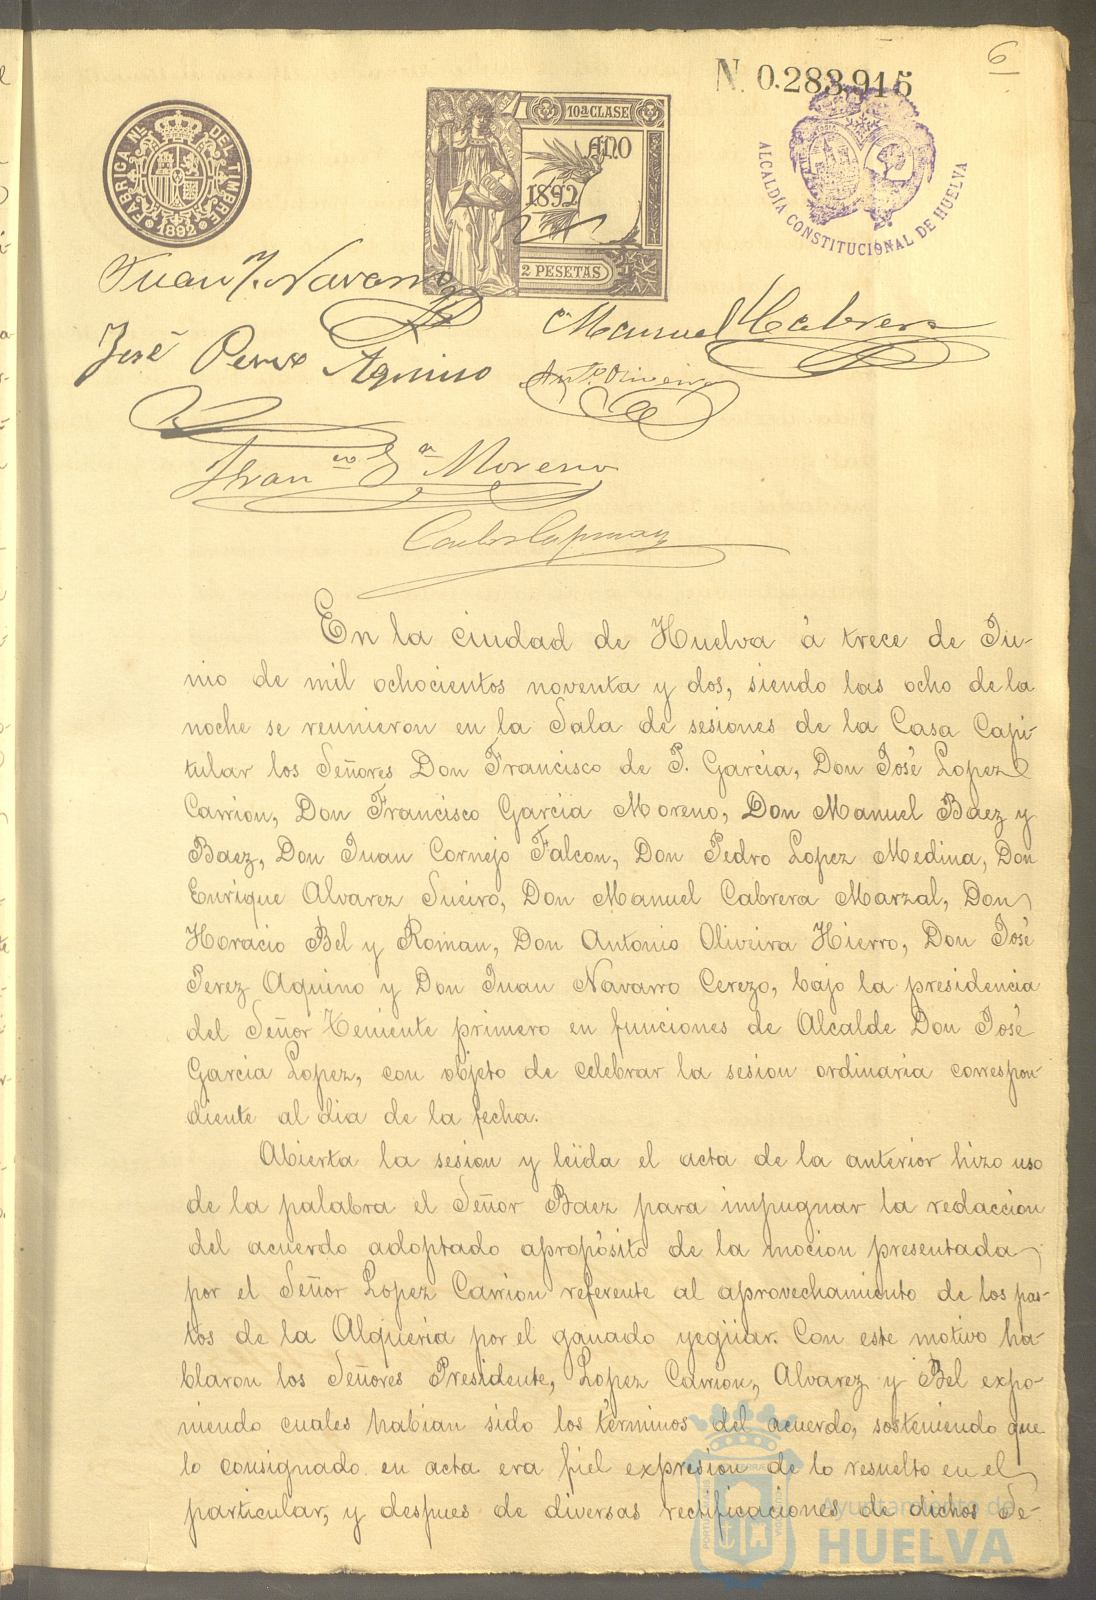 6
N. 0.283,915
FABRICA NL. DEL TIMBRE
1892
10ª CLASE
AÑO
1892
2 PESETAS
ALCALDÍA CONSTITUCIONAL DE HUELVA
Juan J. Navarro
Manuel Cabrera
José Perez Aquino
Antº. Oliveira
Franco Gª Moreno
En la ciudad de Huelva á trece de Ju-
nio de mil ochocientos noventa y dos, siendo las ocho de la
noche se reunieron en la Sala de sesiones de la Casa Capi-
tular los Señores Don Francisco de P. Garcia, Don José Lopez
Carrion, Don Francisco Garcia Moreno, Don Manuel Baez y
Baez, Don Juan Cornejo Falcon, Don Pedro Lopez Medina, Don
Enrique Alvarez Sueiro, Don Manuel Cabrera Marzal, Don
Horacio Bel y Roman, Don Antonio Oliveira Hierro, Don José
Perez Aquino y Don Juan Navarro Cerezo, bajo la presidencia
del Señor Teniente primero en funciones de Alcalde Don José
Garcia Lopez, con objeto de celebrar la sesion ordinaria correspon-
diente al dia de la fecha.
Abierta la sesion y leida el acta de la anterior hizo uso
de la palabra el Señor Baez para impugnar la redaccion
del acuerdo adoptado apropósito de la mocion presentada
por el Señor Lopez Carrion referente al aprovechamiento de los pas-
tos de la Alqueria por el ganado yegüar. Con este motivo ha-
blaron los Señores Presidente, Lopez Carrion, Alvarez y Bel expo-
niendo cuales habian sido los términos del acuerdo, sosteniendo que
lo consignado en acta era fiel expresion de lo resuelto en el
particular, y despues de diversas rectificaciones de dichos Se-
Ayuntamiento de
HUELVA